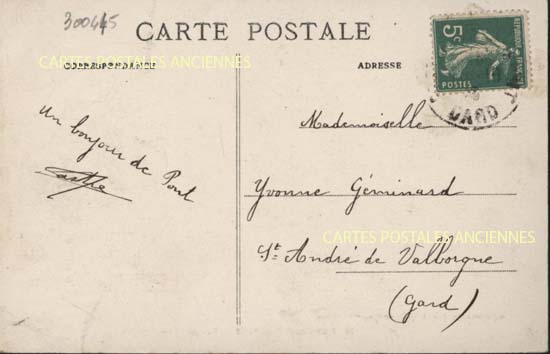 300445
CARTE POSTALE
CARTES POSTALES ANCIENNES
CORRESPONDANCE
ADRESSE
5c
REPUBLIQUE FRANÇAISE
POSTES
GARD
un bonjour de Pont
Mademoiselle
Yvonne Géminard
CARTES POSTALES ANCIENNES
St. Andre de Valborgne
(Gard)